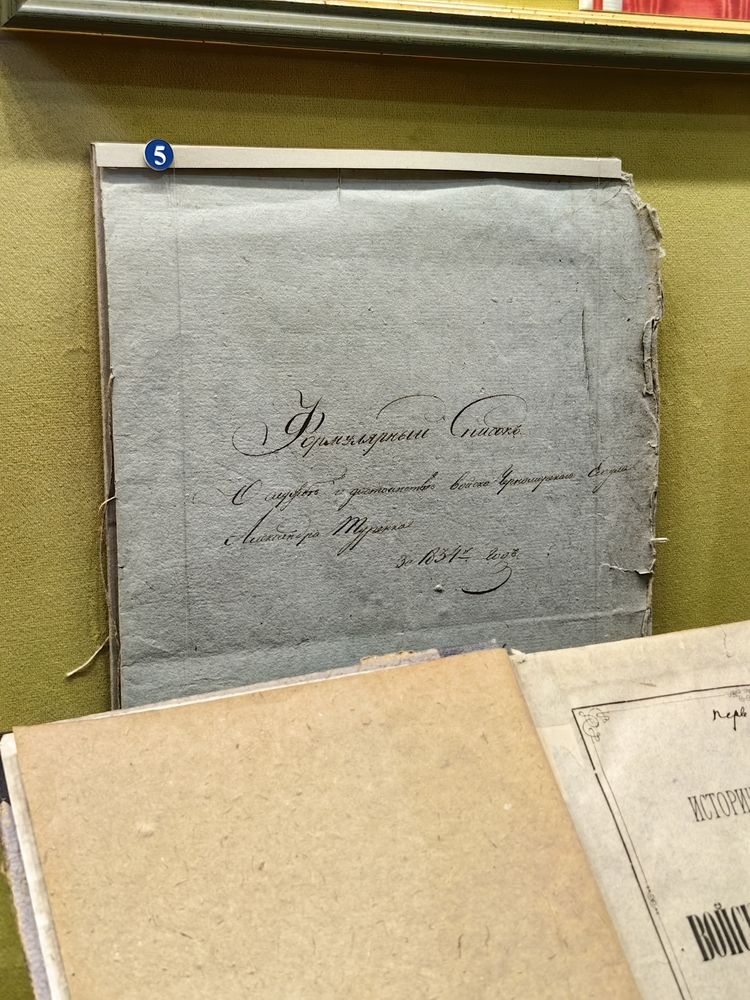 5
Формулярный Списокъ
О службѣ и достоинствѣ войска Черноморскаго Есаула
Александра Туренка
За 1834й годъ.
перв
ИСТОРИЧ
ВОЙСК